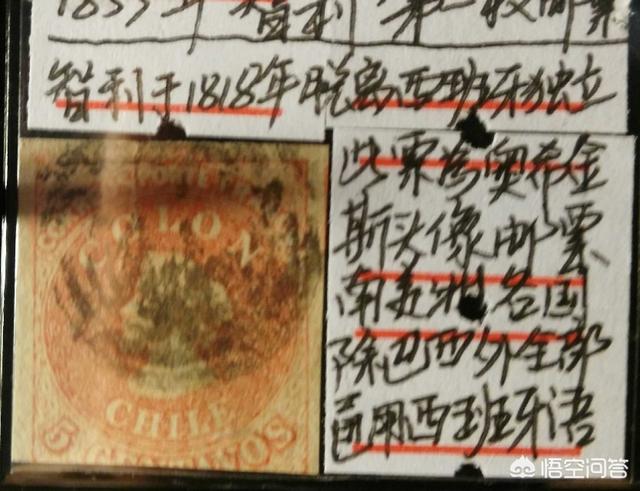 1853年智利第一枚邮票
智利于1818年脱离西班牙独立
COLON
CHILE
5 CENTAVOS
此票为奥希金
斯头像邮票
南美洲各国
除巴西外全部
官用西班牙语
悟空问答